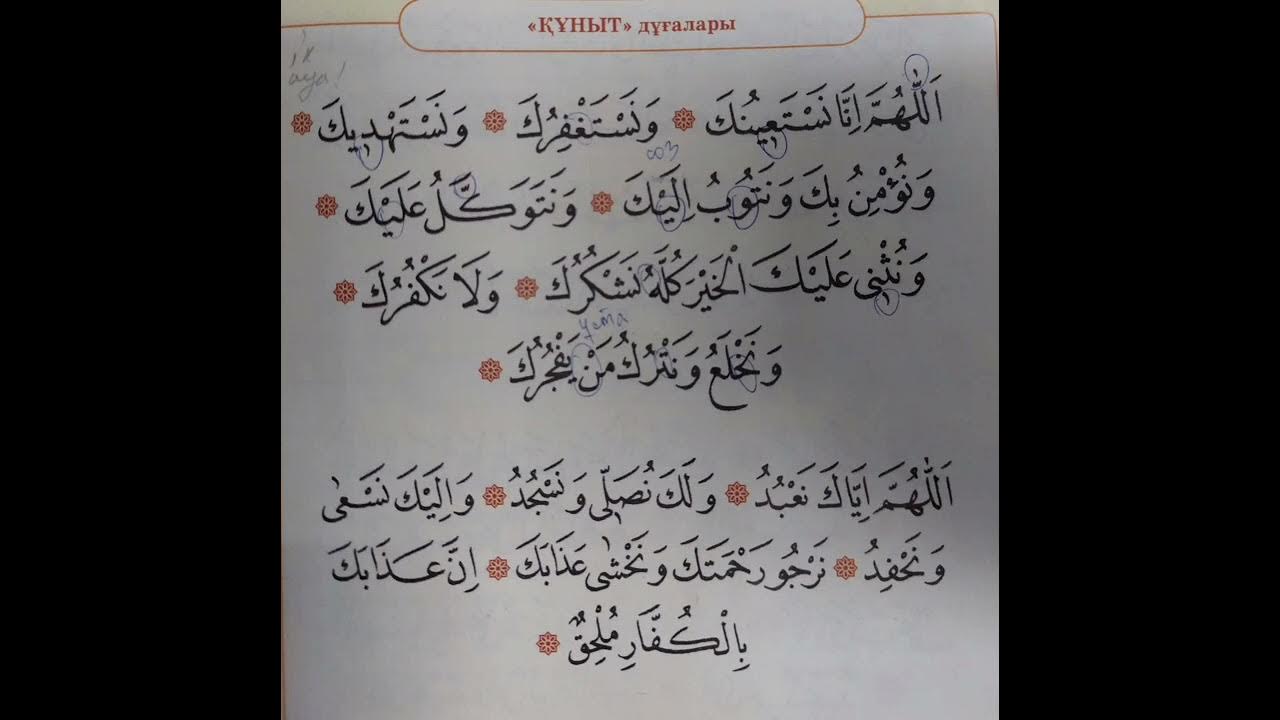 «ҚҰНЫТ» дұғалары
اَللّٰهُمَّ اِنَّا نَسْتَعِينُكَ ۞ وَنَسْتَغْفِرُكَ ۞ وَنَسْتَهْدِيكَ ۞
وَنُؤْمِنُ بِكَ وَنَتُوبُ اِلَيْكَ ۞ وَنَتَوَكَّلُ عَلَيْكَ ۞
وَنُثْنِى عَلَيْكَ الْخَيْرَ كُلَّهُ نَشْكُرُكَ ۞ وَلَا نَكْفُرُكَ ۞
وَنَخْلَعُ وَنَتْرُكُ مَنْ يَفْجُرُكَ ۞
اَللّٰهُمَّ اِيَّاكَ نَعْبُدُ ۞ وَلَكَ نُصَلِّى وَنَسْجُدُ ۞ وَاِلَيْكَ نَسْعٰى
وَنَحْفِدُ ۞ نَرْجُو رَحْمَتَكَ وَنَخْشٰى عَذَابَكَ ۞ اِنَّ عَذَابَكَ
بِالْكُفَّارِ مُلْحِقٌ ۞